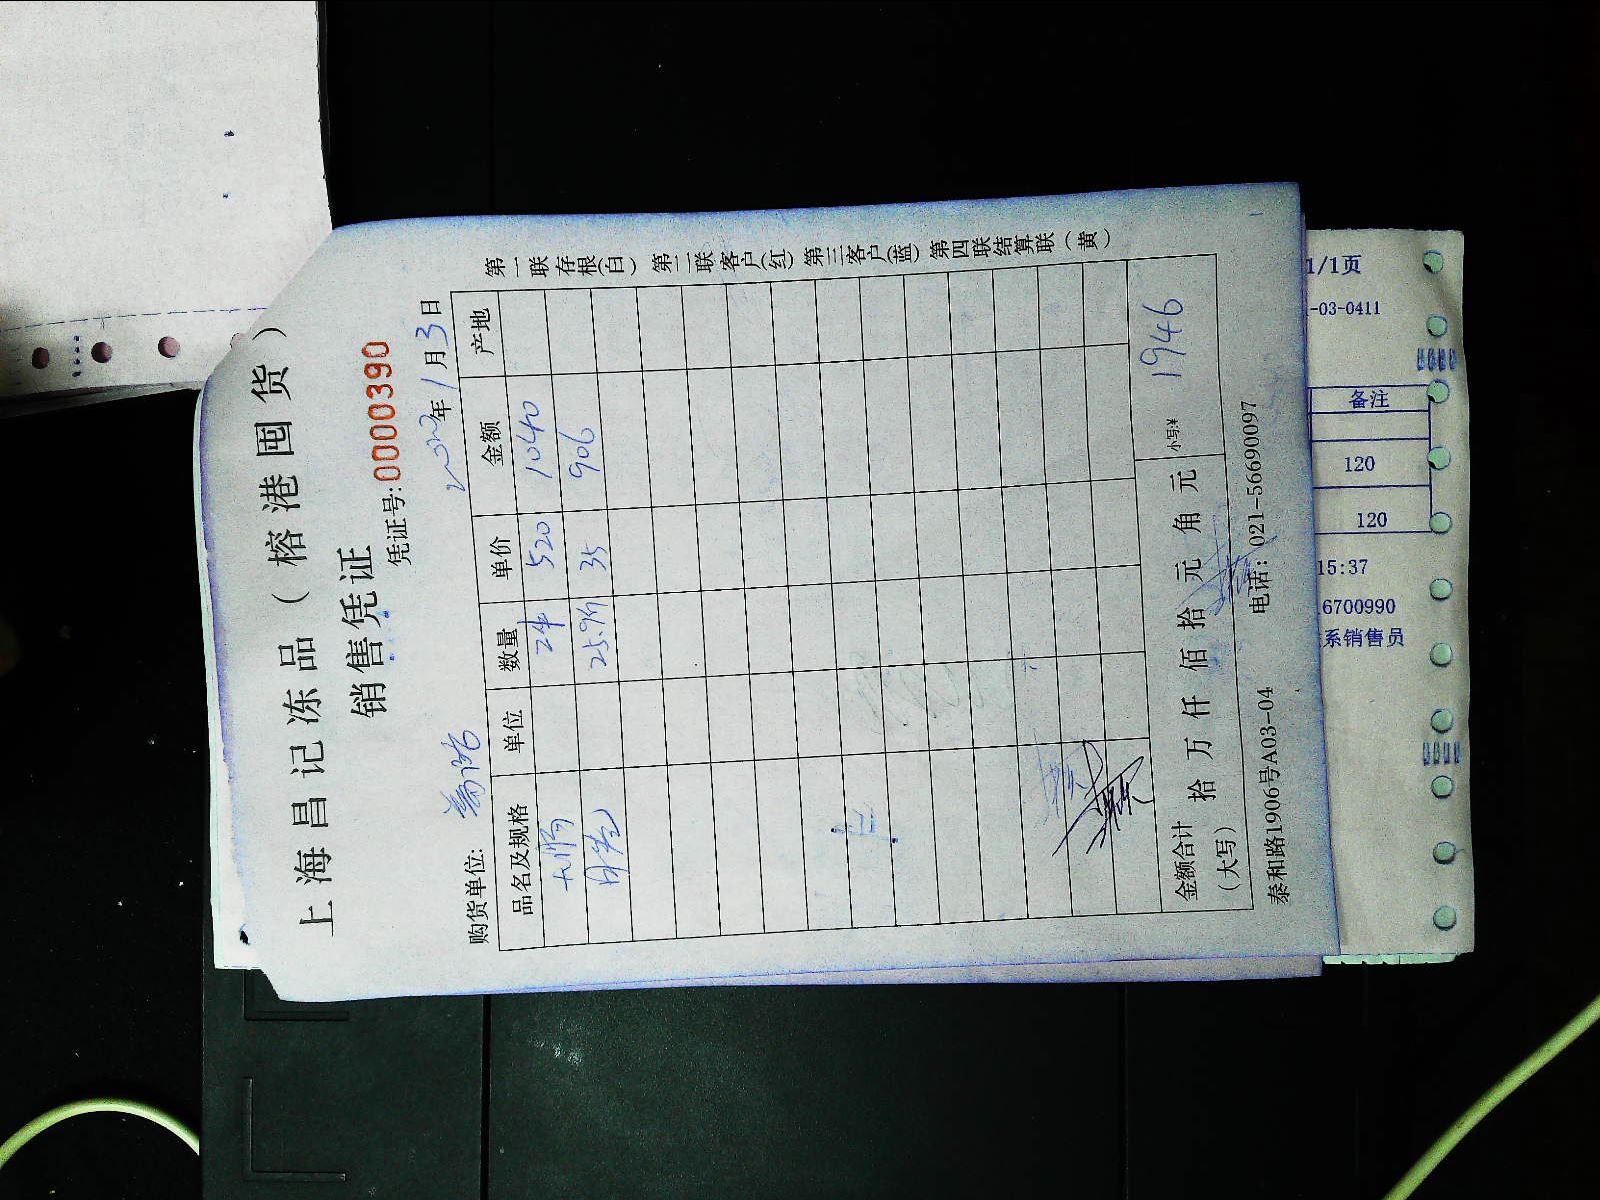 上海昌记冻品（榕港囤货）
销售凭证
凭证号:0000390
2022年1月3日
购货单位:
品名及规格 单位 数量 单价 金额 产地
大肠 2件 520 1040
25.9斤 35 906
金额合计（大写） 拾 万 仟 佰 拾 元 角 元 小写:¥ 1946
泰和路1906号A03-04 电话: 021-56690097
第一联存根(白) 第二联客户(红) 第三客户(蓝) 第四联结算联(黄)
1/1页
-03-0411
备注
120
120
15:37
6700990
系销售员